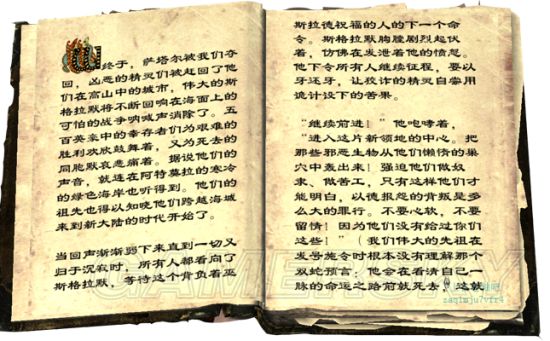 终于，萨塔尔被我们夺
回，凶恶的精灵们被赶回了他
们在高山中的城市，伟大的斯
格拉默将不断回响在海面上的
可怕的战争呐喊声消除了。五
百英豪中的幸存者们为艰难的
胜利欢欣鼓舞着，又为死去的
同胞默哀悲痛着。据说他们的
声音，就连在阿特莫拉的寒冷
的绿色海岸也听得到。他们的
祖先也得以知晓他们跨越海域
来到新大陆的时代开始了。
当回声渐渐弱下来直到一切又
归于沉寂时，所有人都看向了
斯格拉默，等待这个背负着巫
斯拉德祝福的人的下一个命
令。斯格拉默胸膛剧烈起伏
着，仿佛在发泄着他的愤怒。
他下令所有人继续征程，要以
牙还牙，让狡诈的精灵自尝用
诡计设下的苦果。
“继续前进！”他咆哮着，
“进入这片新领地的中心。把
那些邪恶生物从他们懒惰的巢
穴中轰出来！强迫他们做奴
隶、做苦工，只有这样他们才
能明白，以德报怨的背叛是多
么大的罪行。不要心软，不要
留情！因为他们没有给过你们
这些！”（我们伟大的先祖在
发号施令时根本没有理解那个
双蛇预言：他会在看清自己一
脉的命运之路前就死去，这就
GAMERSKY
zaq1mju7vfr4